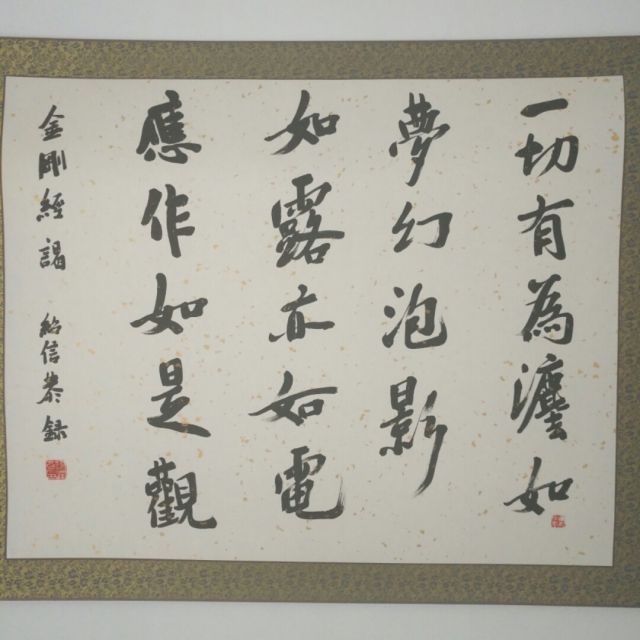 一切有為灋如
夢幻泡影
如露亦如電
應作如是觀
金剛經謁 紹信恭錄